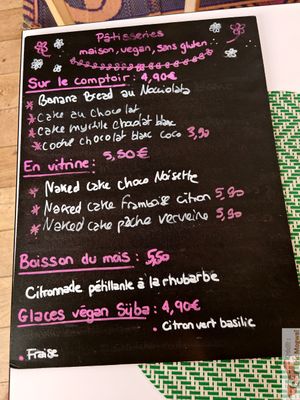 Pâtisseries
maison, vegan, sans gluten
Sur le comptoir : 4,90€
* Banana Bread au Nocciolata
* Cake au chocolat
* Cake myrtille chocolat blanc
* Cookie chocolat blanc coco 3,90
En vitrine : 5,50€
* Naked cake choco Noisette
* Naked cake framboise citron 5,90
* Naked cake pêche verveine 5,90
Boisson du mois : 5,50
Citronnade pétillante à la rhubarbe
Glaces végan Sÿba : 4,90€
• citron vert basilic
• Fraise